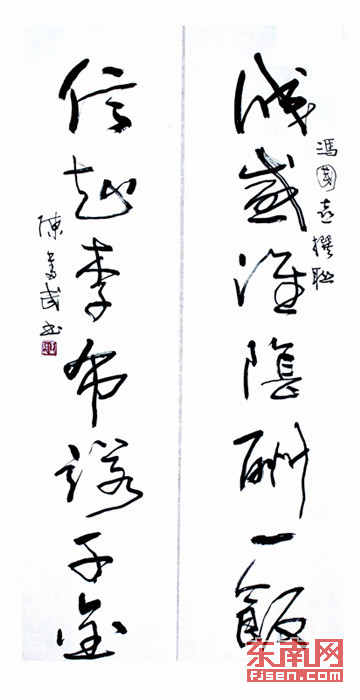 誠感淮陰酬一飯
馮國喜撰聯
信起季布諾千金
陳奮武书
东南网
FJSEN.COM